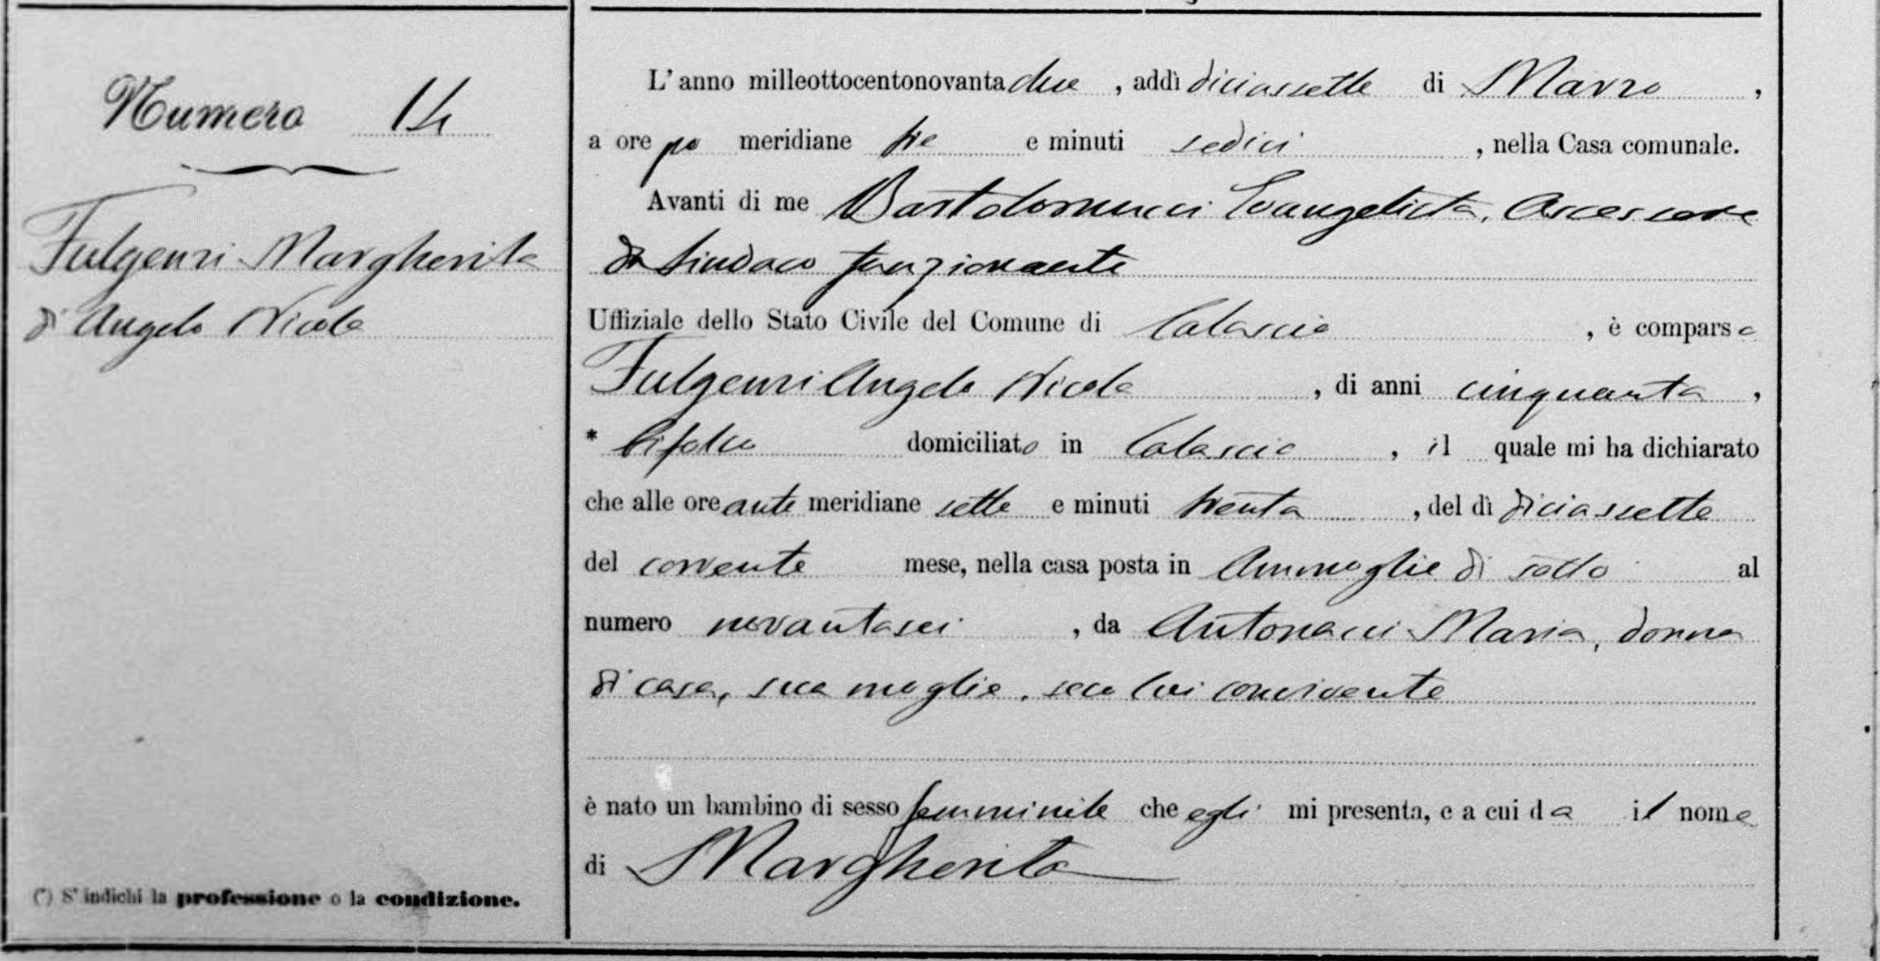 Numero 14
Fulgenzi Margherita
di Angelo Nicola
(*) S'indichi la professione o la condizione.
L'anno milleottocentonovantadue, addì diciassette di Marzo,
a ore po meridiane tre e minuti sedici, nella Casa comunale.
Avanti di me Bartolomucci Evangelista, Assessore
Sindaco funzionante
Uffiziale dello Stato Civile del Comune di Calascio, è comparso
Fulgenzi Angelo Nicola, di anni cinquanta,
* bifolco domiciliato in Calascio, il quale mi ha dichiarato
che alle ore ante meridiane sette e minuti trenta, del dì diciassette
del corrente mese, nella casa posta in di sotto al
numero novantasei, da Antonacci Maria, donna
di casa, sua moglie, seco lui convivente
è nato un bambino di sesso femminile che egli mi presenta, e a cui da il nome
di Margherita